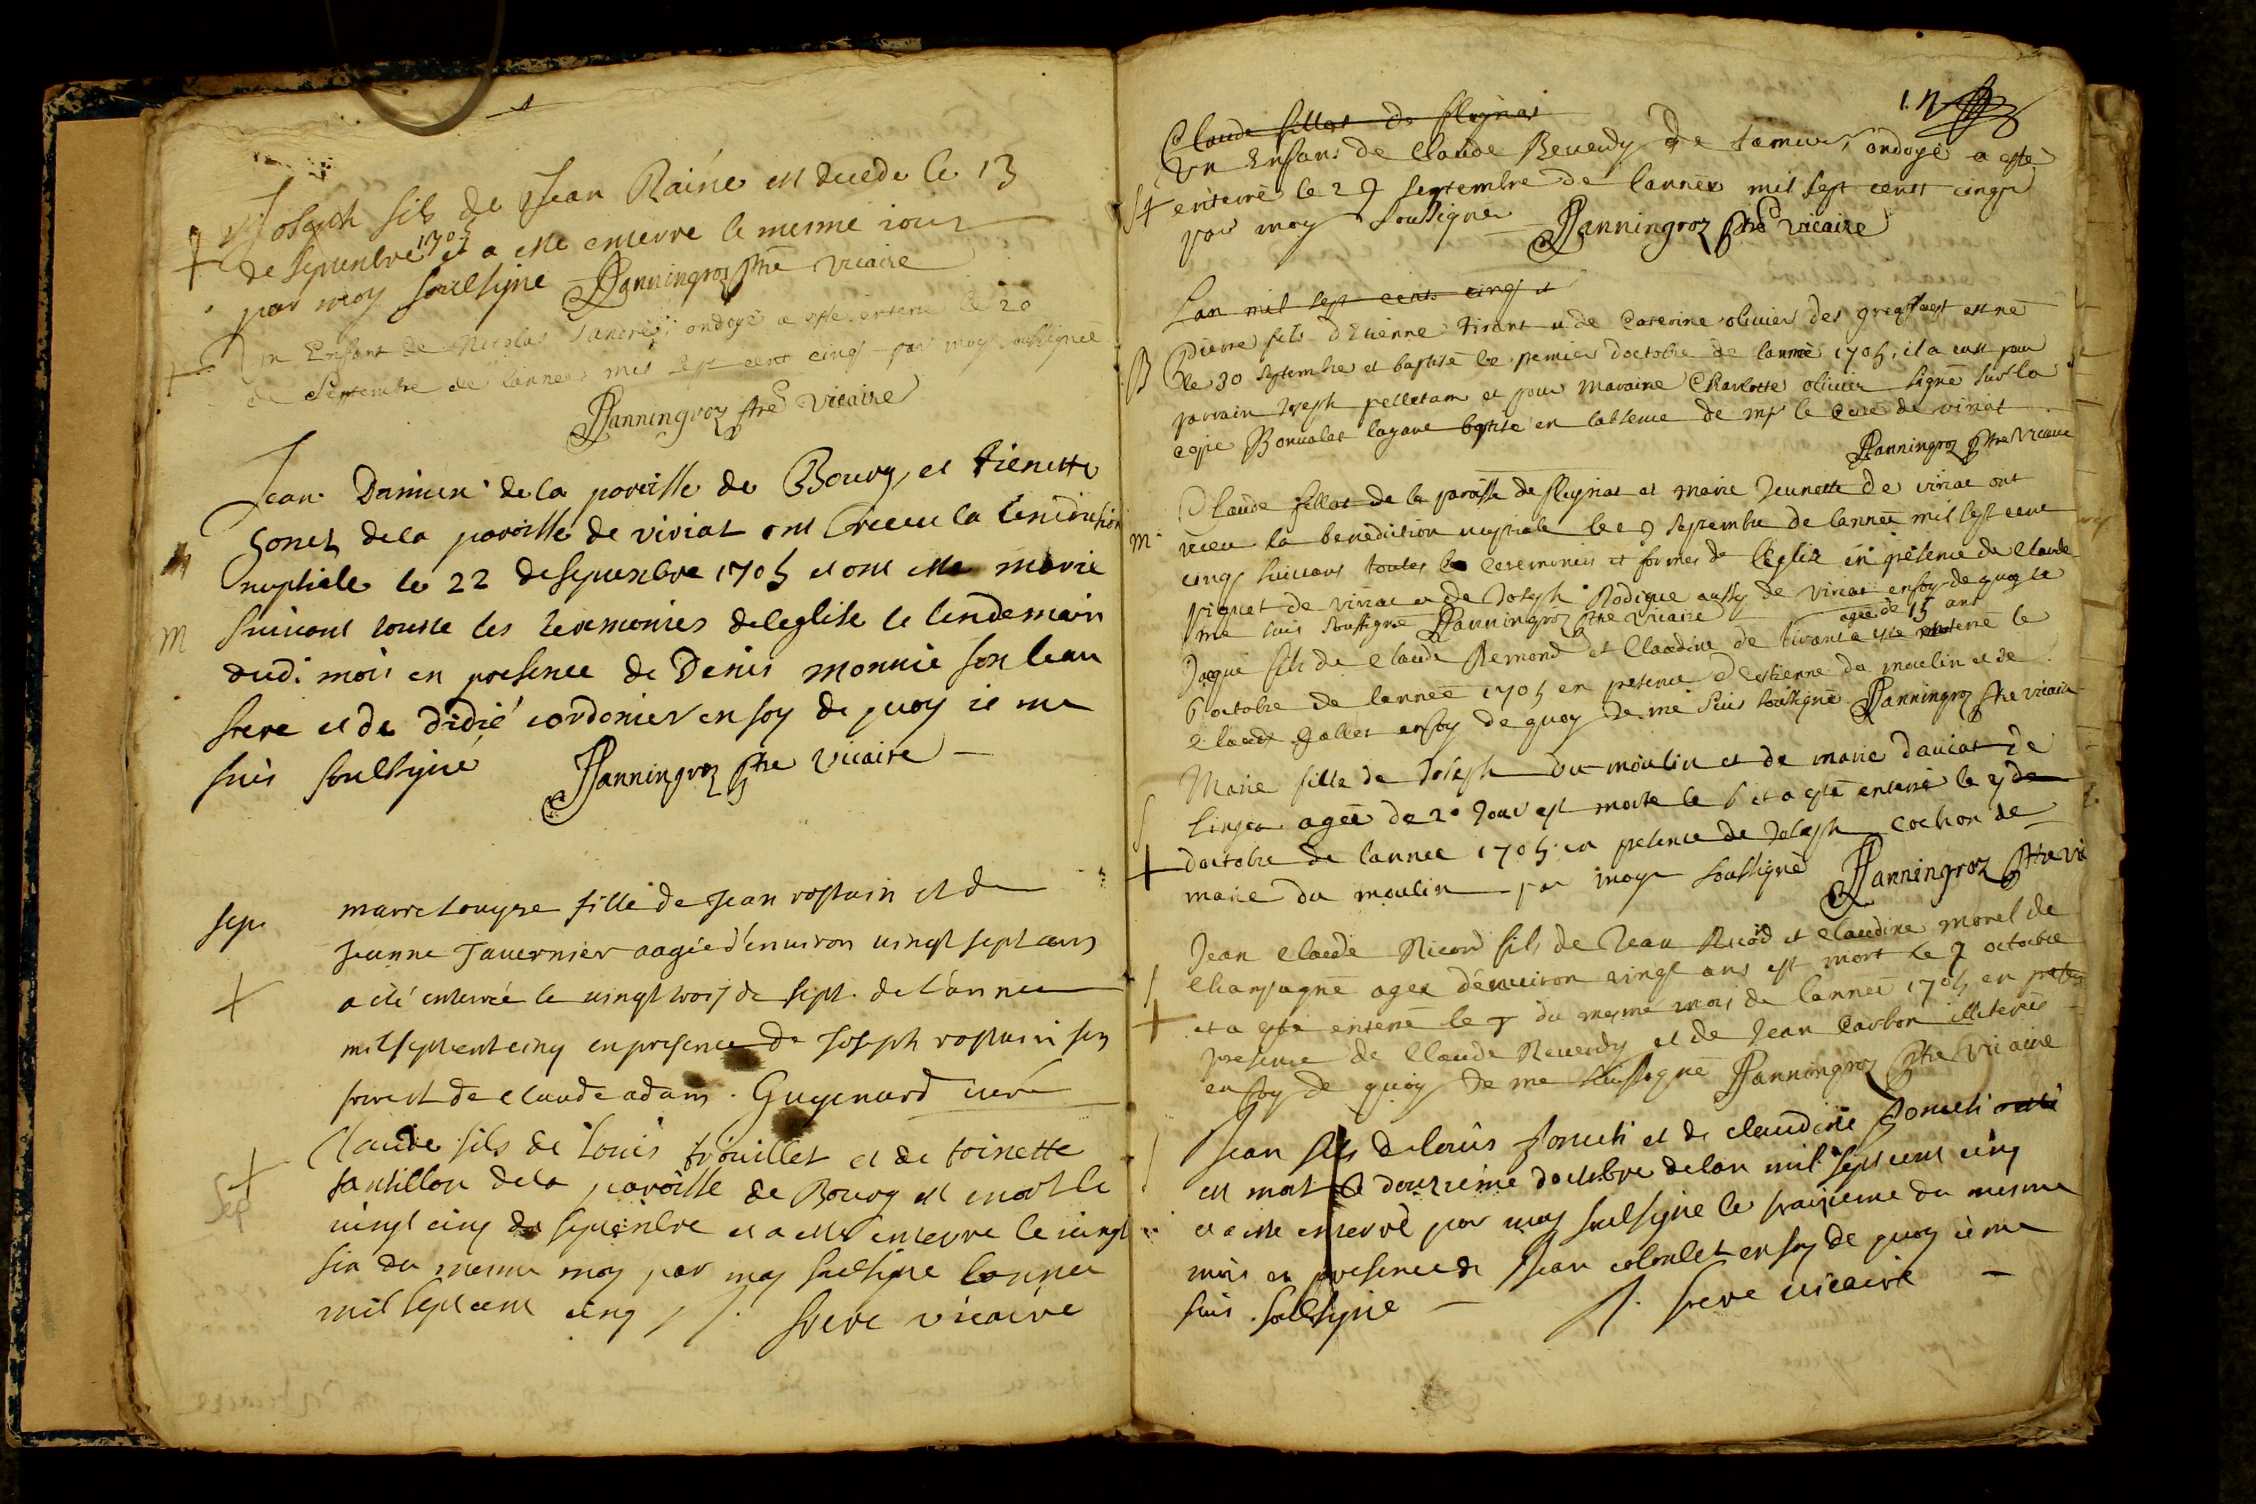 Joseph fils de Jean Rainé est decede le 13
de septembre 1705 et a este enterre le mesme iour
par moy soubsigne Panningroz ptre vicaire
Un Enfant de Nicolas ondoyé a esté enterré le 20
de Septembre de l'année mil sept cent cinq par moy soussignee
Panningroz ptre vicaire
Jean Damien de la paroisse de Bourg et tienette
Gonet de la paroisse de viriat ont receu la benediction
M nuptiale le 22 de septembre 1705 et ont este marie
M suivant toutte les ceremonies de leglise le lendemain
dudi mois en presence de Denis monnie son beau
frere et de didié cordonier en foy de quoy ie me
suis soubsigné Panningroz ptre vicaire
sep. marie Louyse fille de Jean rostain et de
Jeanne Tavernier aagée d'environ vingt sept ans
a été enterrée le vingt trois de sept. de l'année
mil sept cent cinq en presence de Joseph rostain son
frere et de claude adam. Guyenard curé
Claude fils de louis trouillet et de toinette
Sep de la paroisse de Bourg est mort le
vingt cinq de septembre et a este enterre le vingt
six du mesme moy par moy soubsigne lannee
mil sept cent cinq frere vicaire
Claude fillot de
Un Enfant de Claude Reverdy de ondoyé a esté
enterré le 29 septembre de lannee mil sept cent cinq
par moy soussigne Panningroz ptre vicaire
Lan mil sept cents cinq et
Pierre fils d'Etienne tirant et de Caterine olivier des est né
B le 30 septembre et baptisé le premier doctobre de lannee 1705, il a eust pour
parrain Joseph pelletam et pour maraine Charlotte olivier signé sur la
copie Bonvalot lagare baptisé en labsence de mr le Curé de viriat
Panningroz ptre vicaire
Claude fillot de la paroisse de et Marie Jeunette de viriat ont
M receu la benediction nuptiale le 29 septembre de lannee mil sept cent
cinq suivans toutes les ceremonies et formes de l'Eglise en presence de Claude
piquet de viriat et de Joseph Rodique aussy de viriat en foy de quoy je
me suis soussigné Panningroz ptre vicaire agé de 15 ans
Jaque fils de Claude Remond et Claudine de tirant a esté enterré le
6 octobre de lannee 1705 en presence d'Estienne du moulin et de
Claude en foy de quoy je me suis soussigné Panningroz ptre vicaire
Marie fille de Joseph du moulin et de marie daviat de
agee de 20 Jour est morte le 6 et a esté enterré le 7 de
doctobre de lannee 1705 en presence de Joseph cochon de
marie du moulin par moy soussigné Panningroz ptre vic
Jean Claude Ricord fils de Jean Ricod et Claudine morel de
Champagne agée d'environ vingt ans est mort le 7 octobre
et a esté enterré le du mesme mois de lannee 1705 en
presence de Claude Reverdy et de Jean Carbon illiterés
en foy de quoy je me soussigné Panningroz ptre vicaire
Jean fils de louis et de claudine
est mort le douzieme doctobre de lan mil sept cent cinq
et a este enterré par moy soubsigne le traizieme du mesme
mois en presence de Jean en foy de quoy ie me
suis soubsigne frere vicaire